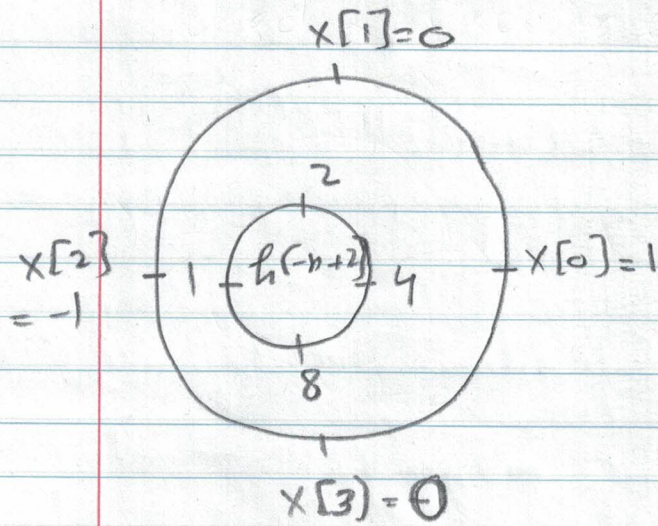 x[1]=0
2
x[2] 1 h(-n+2) 4 x[0]=1
= -1
8
x[3) = 0